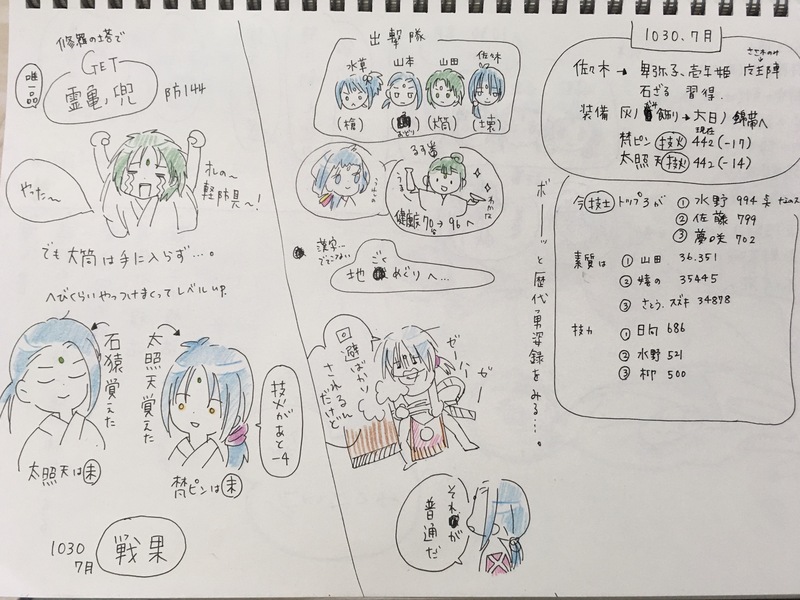 1030.7月
ささ木のみ
佐々木→卑弥子、壱与姫
石ざる 習得.
装備
現在
梵ピン 技火 442(-17)
太照天 技火 442(-14)
今 技土 トップ3が ① 水野 994
② 佐藤 799
③ 夢咲 702
素質は ① 山田 36.351
② 嬉の 35445
③ さとう、スズキ 34878
技力 ① 日向 686
② 水野 521
③ 柳 500
出撃隊
水草 山本 山田 佐々木
(槍) (おどり) (大筒) (壊)
るす番
うる
わかば
健康度70→96へ
漢字…
でてこない
ごく
地 めぐりへ…
ボーーッと歴代勇姿録をみる…。
回避ばかり
されるん
だけど
ゼーハーゼー
それが
普通だ
修羅の塔で
GET
唯一品
霊亀ノ兜
防144
やったー
れの〜
軽防具〜!
でも大筒は手に入らず…。
へびくらいやっつけまくってレベルup.
石猿覚えた
太照天覚えた
技火があと
-4
太照天は未
梵ピンは未
1030
7月
戦果